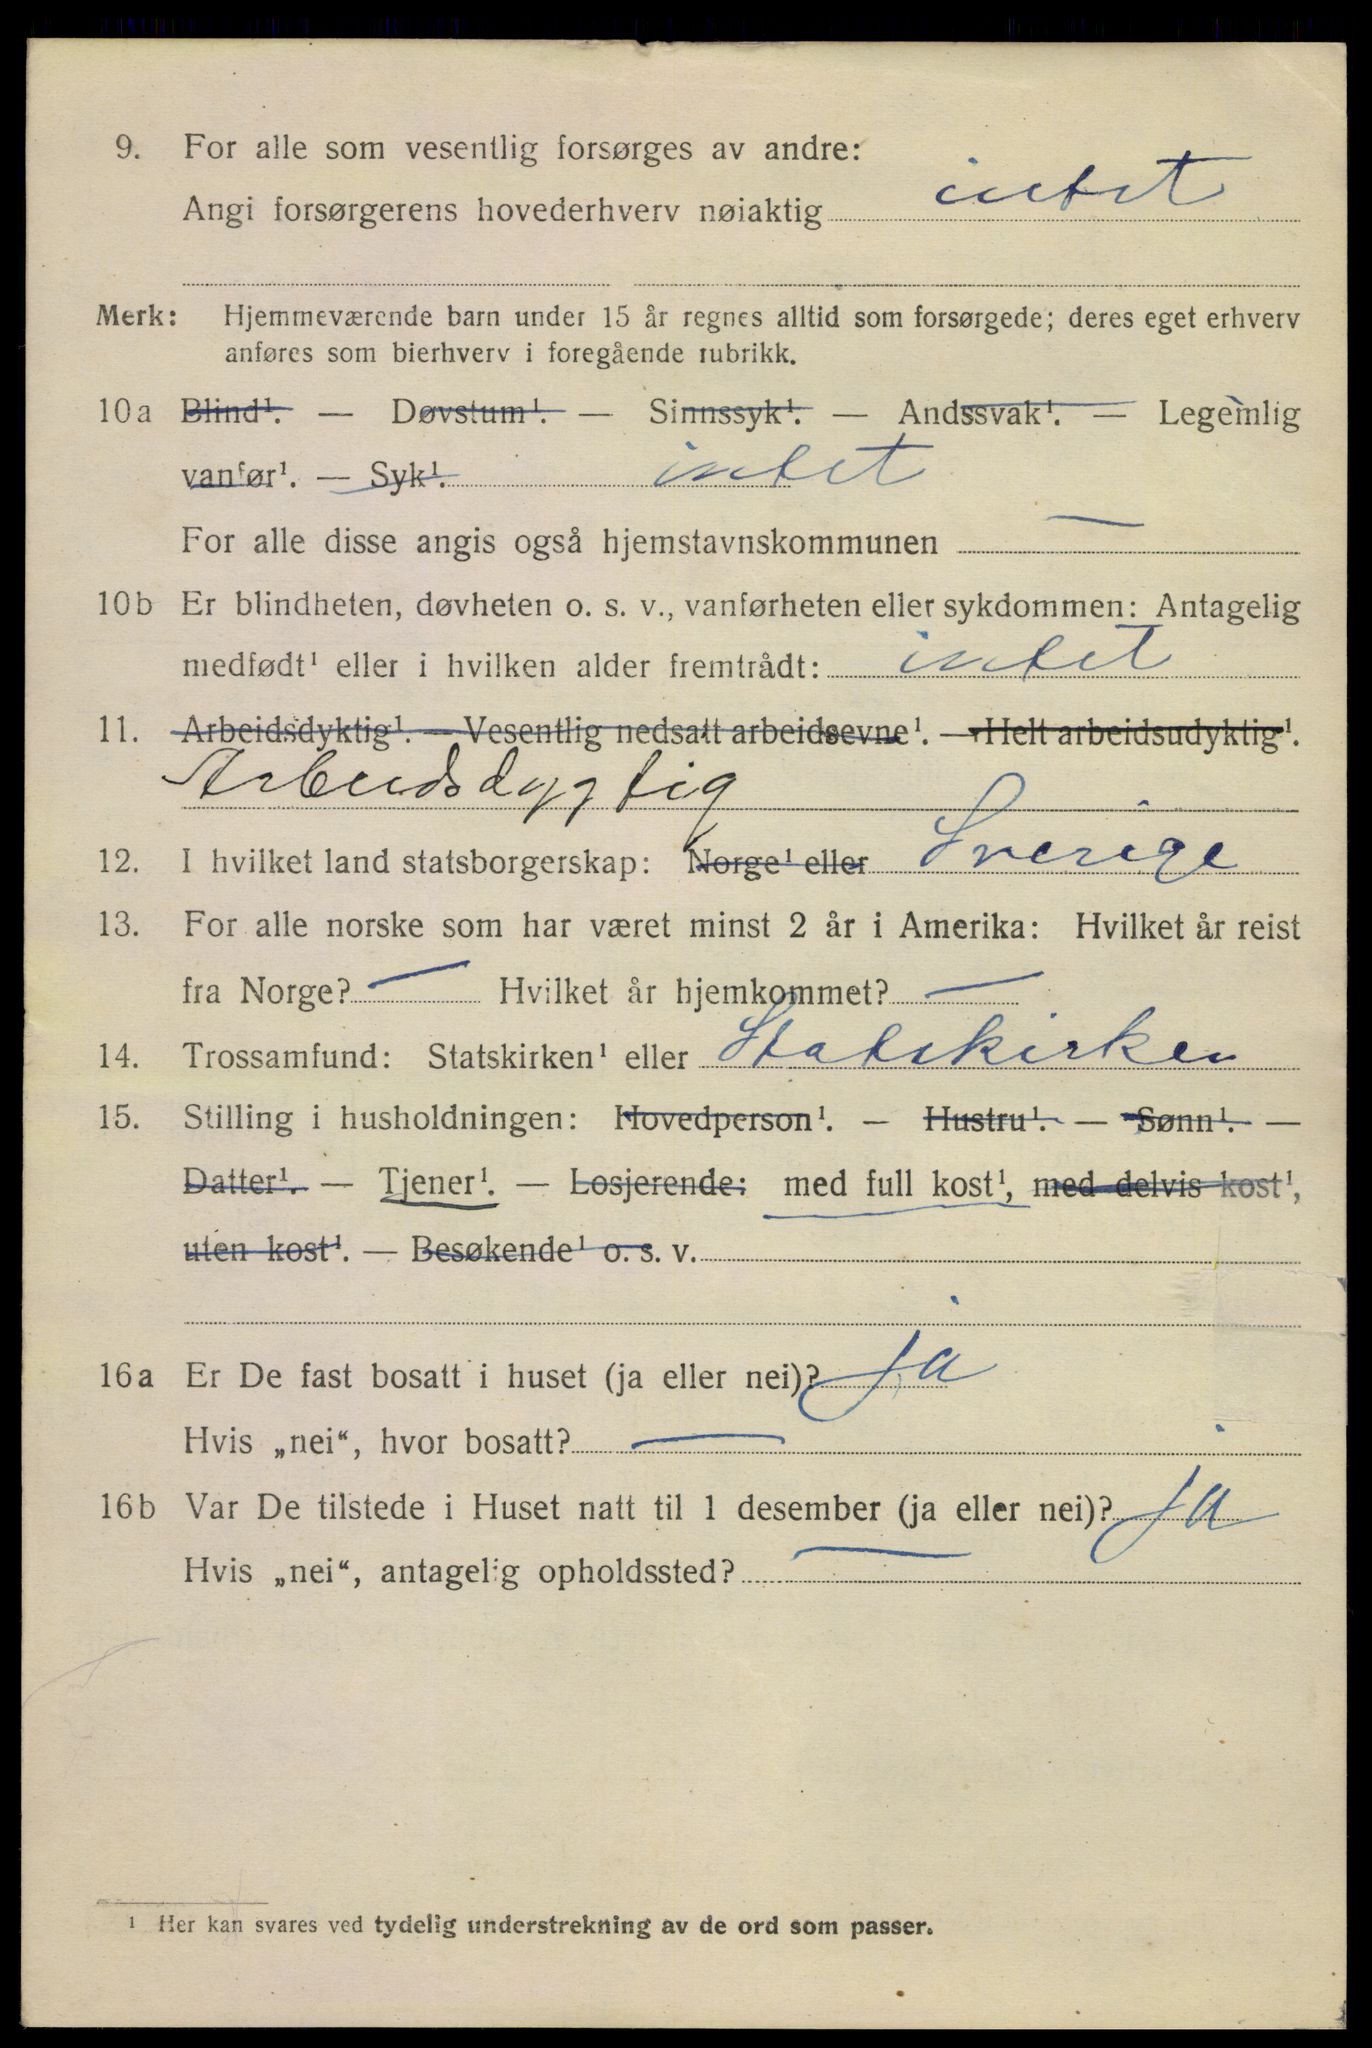 9. For alle som vesentlig forsørges av andre:
Angi forsørgerens hovederhverv nøiaktig intet
Merk: Hjemmeværende barn under 15 år regnes alltid som forsørgede; deres eget erhverv
anføres som bierhverv i foregående rubrikk.
10a Blind¹. — Døvstum¹. — Sinnssyk¹. — Andssvak¹. — Legemlig
vanfør¹. — Syk¹. intet
For alle disse angis også hjemstavnskommunen —
10b Er blindheten, døvheten o. s. v., vanførheten eller sykdommen: Antagelig
medfødt¹ eller i hvilken alder fremtrådt: intet
11. Arbeidsdyktig¹. — Vesentlig nedsatt arbeidsevne¹. — Helt arbeidsudyktig¹.
Arbeidsdygtig
12. I hvilket land statsborgerskap: Norge¹ eller Sverige
13. For alle norske som har været minst 2 år i Amerika: Hvilket år reist
fra Norge? — Hvilket år hjemkommet? —
14. Trossamfund: Statskirken¹ eller Statskirken
15. Stilling i husholdningen: Hovedperson¹. — Hustru¹. — Sønn¹. —
Datter¹. — Tjener¹. — Losjerende: med full kost¹, med delvis kost¹,
uten kost¹. — Besøkende¹ o. s. v.
16a Er De fast bosatt i huset (ja eller nei)? ja
Hvis „nei“, hvor bosatt? —
16b Var De tilstede i Huset natt til 1 desember (ja eller nei)? ja
Hvis „nei“, antagelig opholdssted? —
¹ Her kan svares ved tydelig understrekning av de ord som passer.